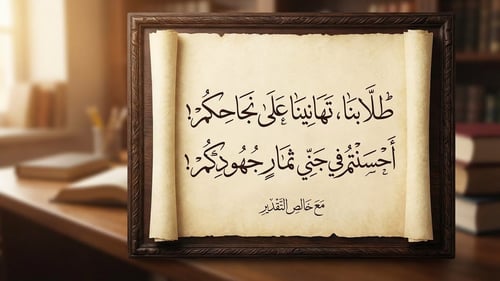 طُلَّابنَا، تَهَانِينَا عَلَى نَجَاحِكُمْ!
أَحْسَنْتُمْ فِي جَنْيِ ثِمَارِ جُهُودِكُمْ!
مَعَ خَالِصِ التَّقْدِيرِ